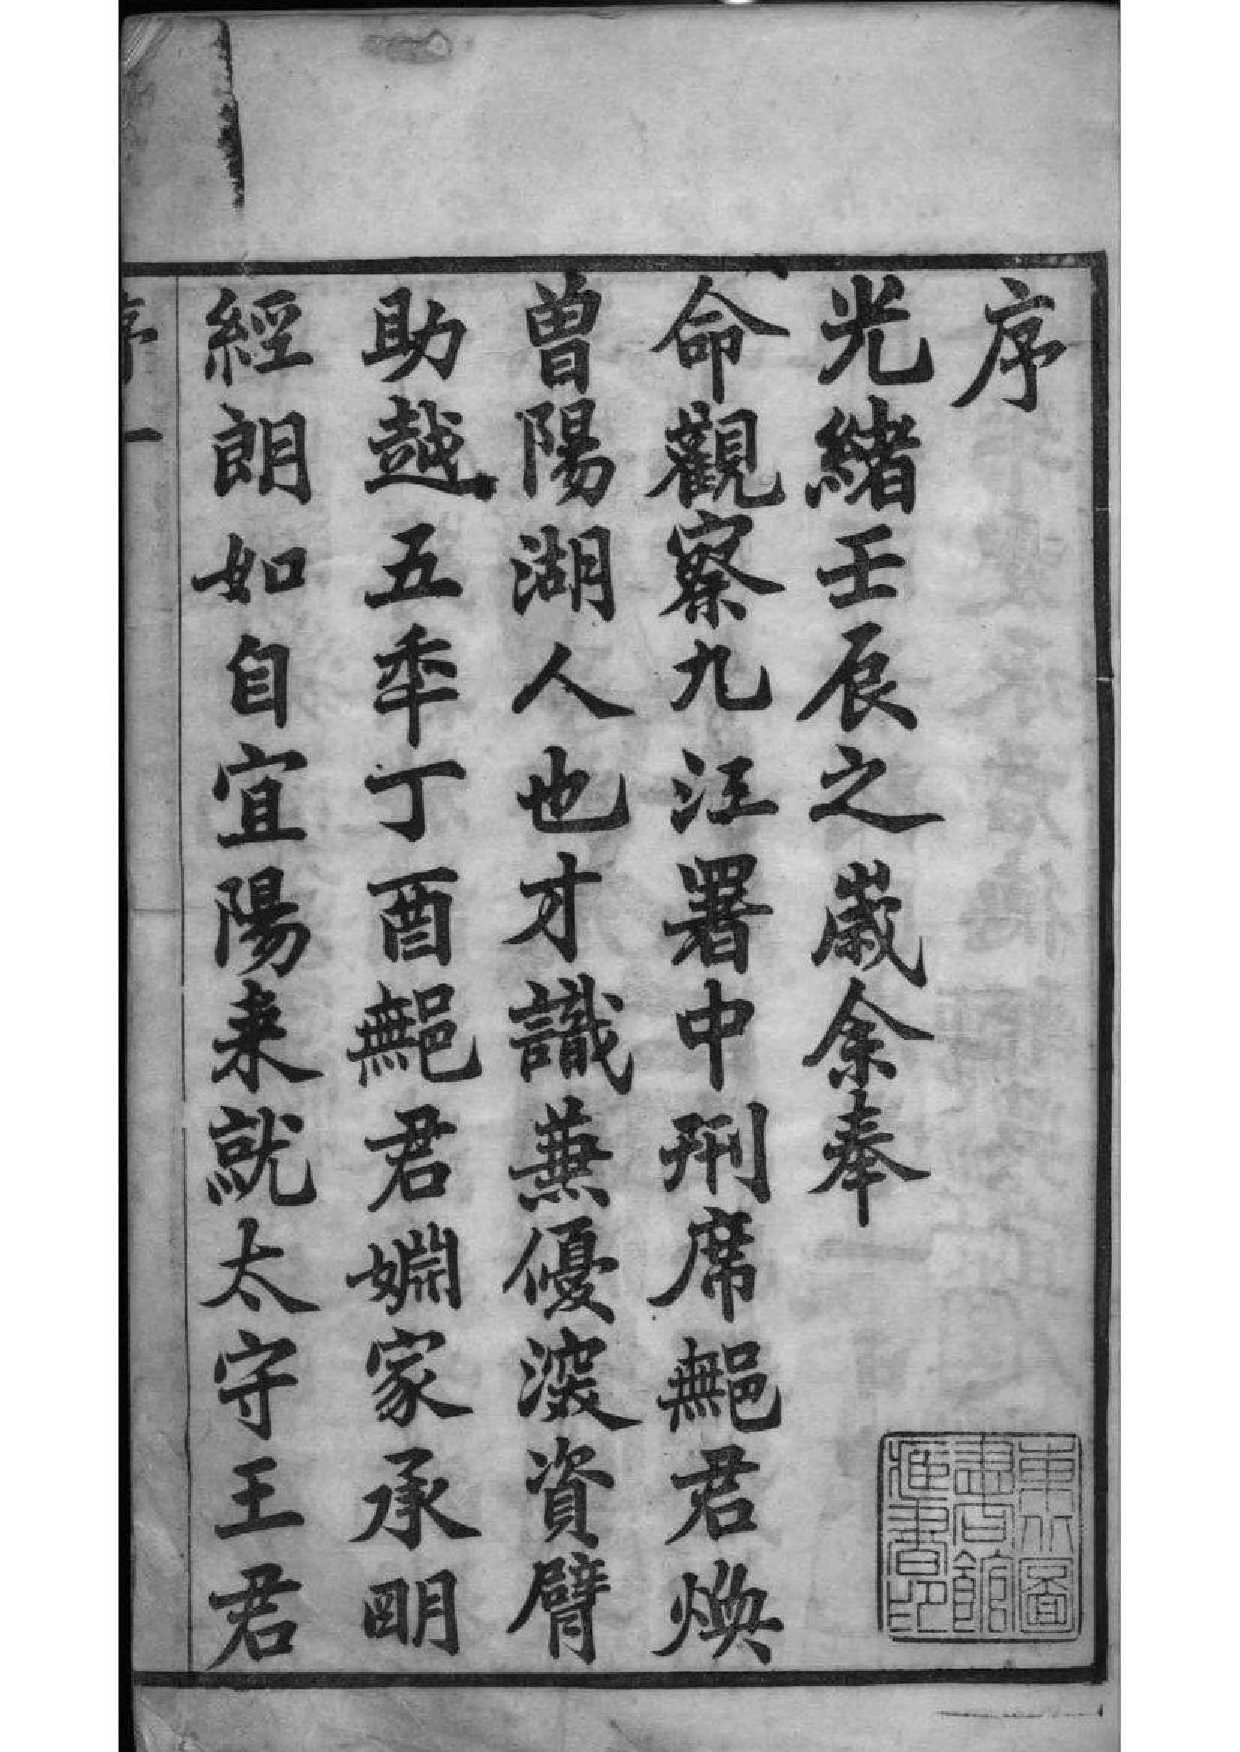 序
光緒壬辰之歲余奉
命觀察九江署中刑席䣚君煥
曾陽湖人也才識兼優深資臂
助越五年丁酉䣚君嫻家承明
經朗如自宜陽来就太守王君
序 一
東北圖
書館
藏書印